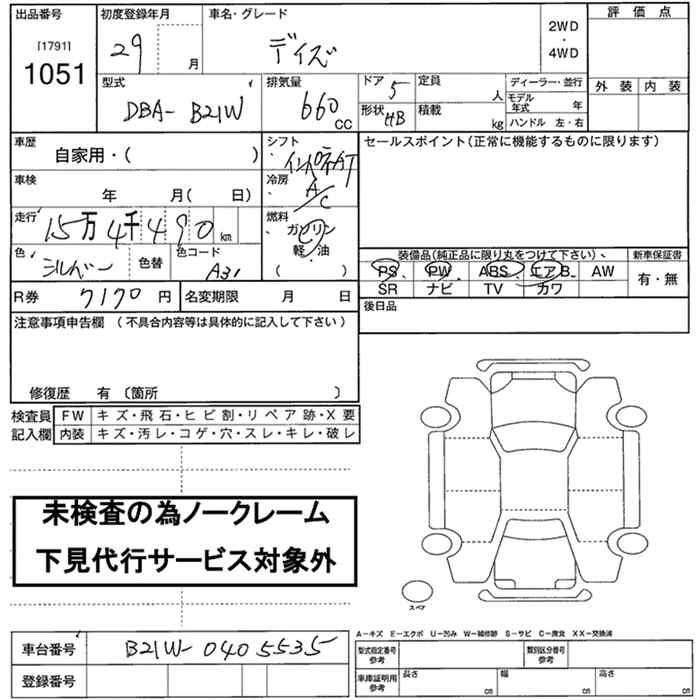 出品番号 初度登録年月 車名・グレード 評価点
[1791] 29 月 デイズ 2WD・4WD
1051 外装 内装
型式 排気量 ドア 定員 ディーラー・並行
DBA- B21W 660 CC 5 人 モデル年式 年
形状 HB 積載 kg ハンドル 左・右
車歴 シフト セールスポイント(正常に機能するものに限ります)
自家用・( ) インパネAT
車検 冷房
年 月( 日) A/C
走行 燃料
15万4千490km ガソリン・
軽・油
色 色替 色コード 装備品(純正品に限り丸をつけて下さい)、 新車保証書
シルバー A31 ( ) PS、PW、ABS、エアB、AW 有・無
SR ナビ TV カワ
R券 7170円 名変期限 月 日 後日品
注意事項申告欄 (不具合内容等は具体的に記入して下さい)
修復歴 有 〔箇所 )
検査員 FW キズ・飛石・ヒビ割・リペア跡・X要
記入欄 内装 キズ・汚レ・コゲ・穴・スレ・キレ・破レ
未検査の為ノークレーム
下見代行サービス対象外
スペア
A-キズ E-エクボ U-凹み W-補修跡 S-サビ C-腐食 XX-交換済
車台番号 B21W-0405535 型式指定番号参考 類別区分番号参考
登録番号 車庫証明用参考 長さ cm 幅 cm 高さ cm